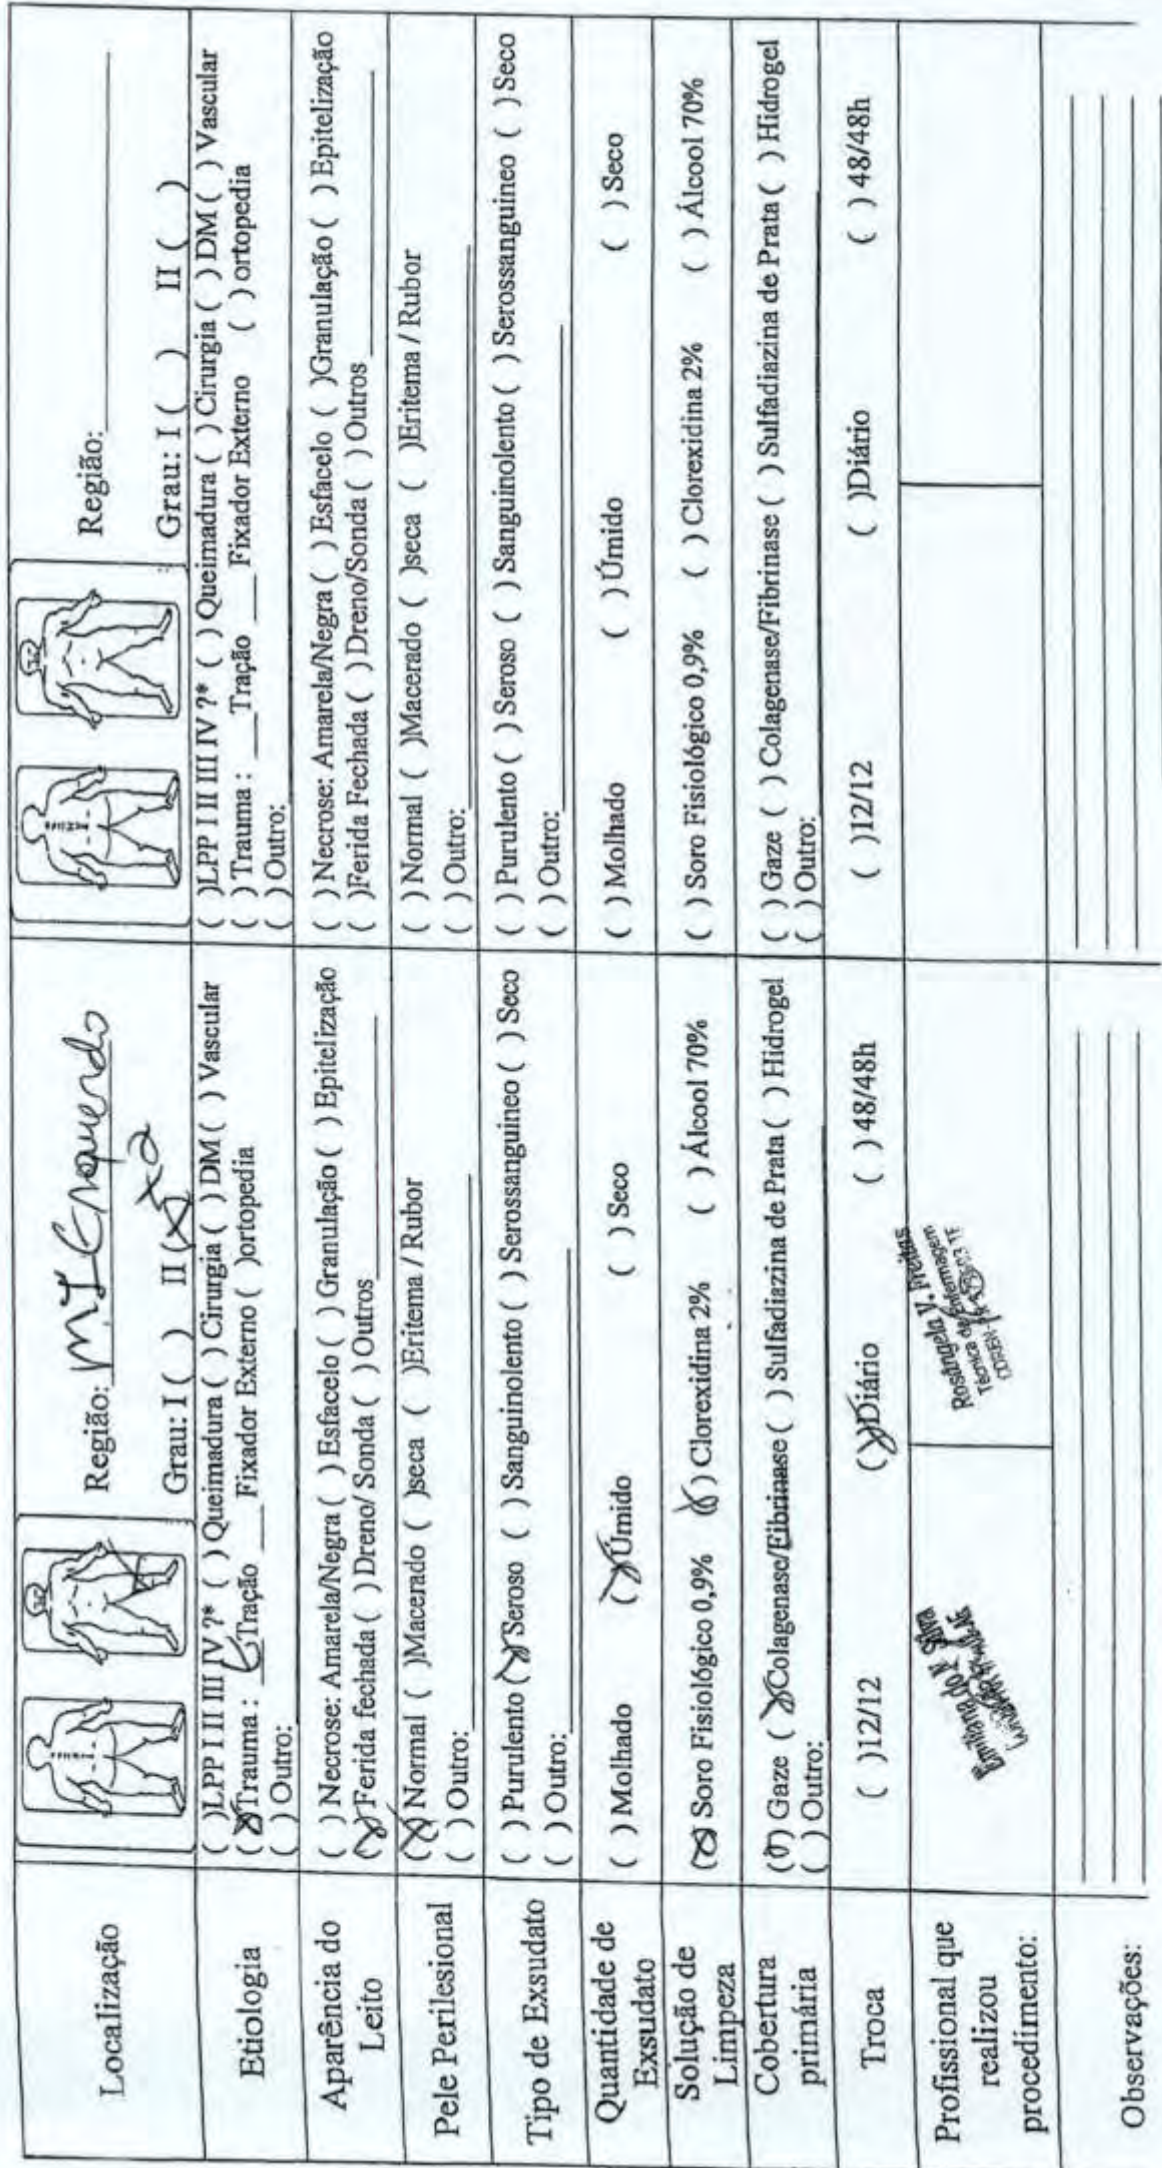 Localização
Região: MI Esquerdo
Grau: I ( ) II (X)
Região:
Grau: I ( ) II ( )
Etiologia
( )LPP I II III IV ?* ( ) Queimadura ( ) Cirurgia ( ) DM ( ) Vascular
(X)Trauma : ___Tração ___Fixador Externo ( )ortopedia
( ) Outro:
( )LPP I II III IV ?* ( ) Queimadura ( ) Cirurgia ( ) DM ( ) Vascular
( ) Trauma : ___Tração ___Fixador Externo ( ) ortopedia
( ) Outro:
Aparência do
Leito
( ) Necrose: Amarela/Negra ( ) Esfacelo ( ) Granulação ( ) Epitelização
(X)Ferida fechada ( ) Dreno/ Sonda ( ) Outros
( ) Necrose: Amarela/Negra ( ) Esfacelo ( )Granulação ( ) Epitelização
( )Ferida Fechada ( ) Dreno/Sonda ( ) Outros
Pele Perilesional
(X) Normal ( )Macerado ( )seca ( )Eritema / Rubor
( ) Outro:
( ) Normal ( )Macerado ( )seca ( )Eritema / Rubor
( ) Outro:
Tipo de Exsudato
( ) Purulento (X) Seroso ( ) Sanguinolento ( ) Serossanguineo ( ) Seco
( ) Outro:
( ) Purulento ( ) Seroso ( ) Sanguinolento ( ) Serossanguineo ( ) Seco
( ) Outro:
Quantidade de
Exsudato
( ) Molhado (X)Úmido ( ) Seco
( ) Molhado ( ) Úmido ( ) Seco
Solução de
Limpeza
(X) Soro Fisiológico 0,9% (X) Clorexidina 2% ( ) Álcool 70%
( ) Soro Fisiológico 0,9% ( ) Clorexidina 2% ( ) Álcool 70%
Cobertura
primária
(X) Gaze (X)Colagenase/Fibrinase ( ) Sulfadiazina de Prata ( ) Hidrogel
( ) Outro:
( ) Gaze ( ) Colagenase/Fibrinase ( ) Sulfadiazina de Prata ( ) Hidrogel
( ) Outro:
Troca
( )12/12 (X)Diário ( ) 48/48h
( )12/12 ( )Diário ( ) 48/48h
Profissional que
realizou
procedimento:
Silva
Rosângela V. Freitas
Técnica de Enfermagem
COREN
Observações: